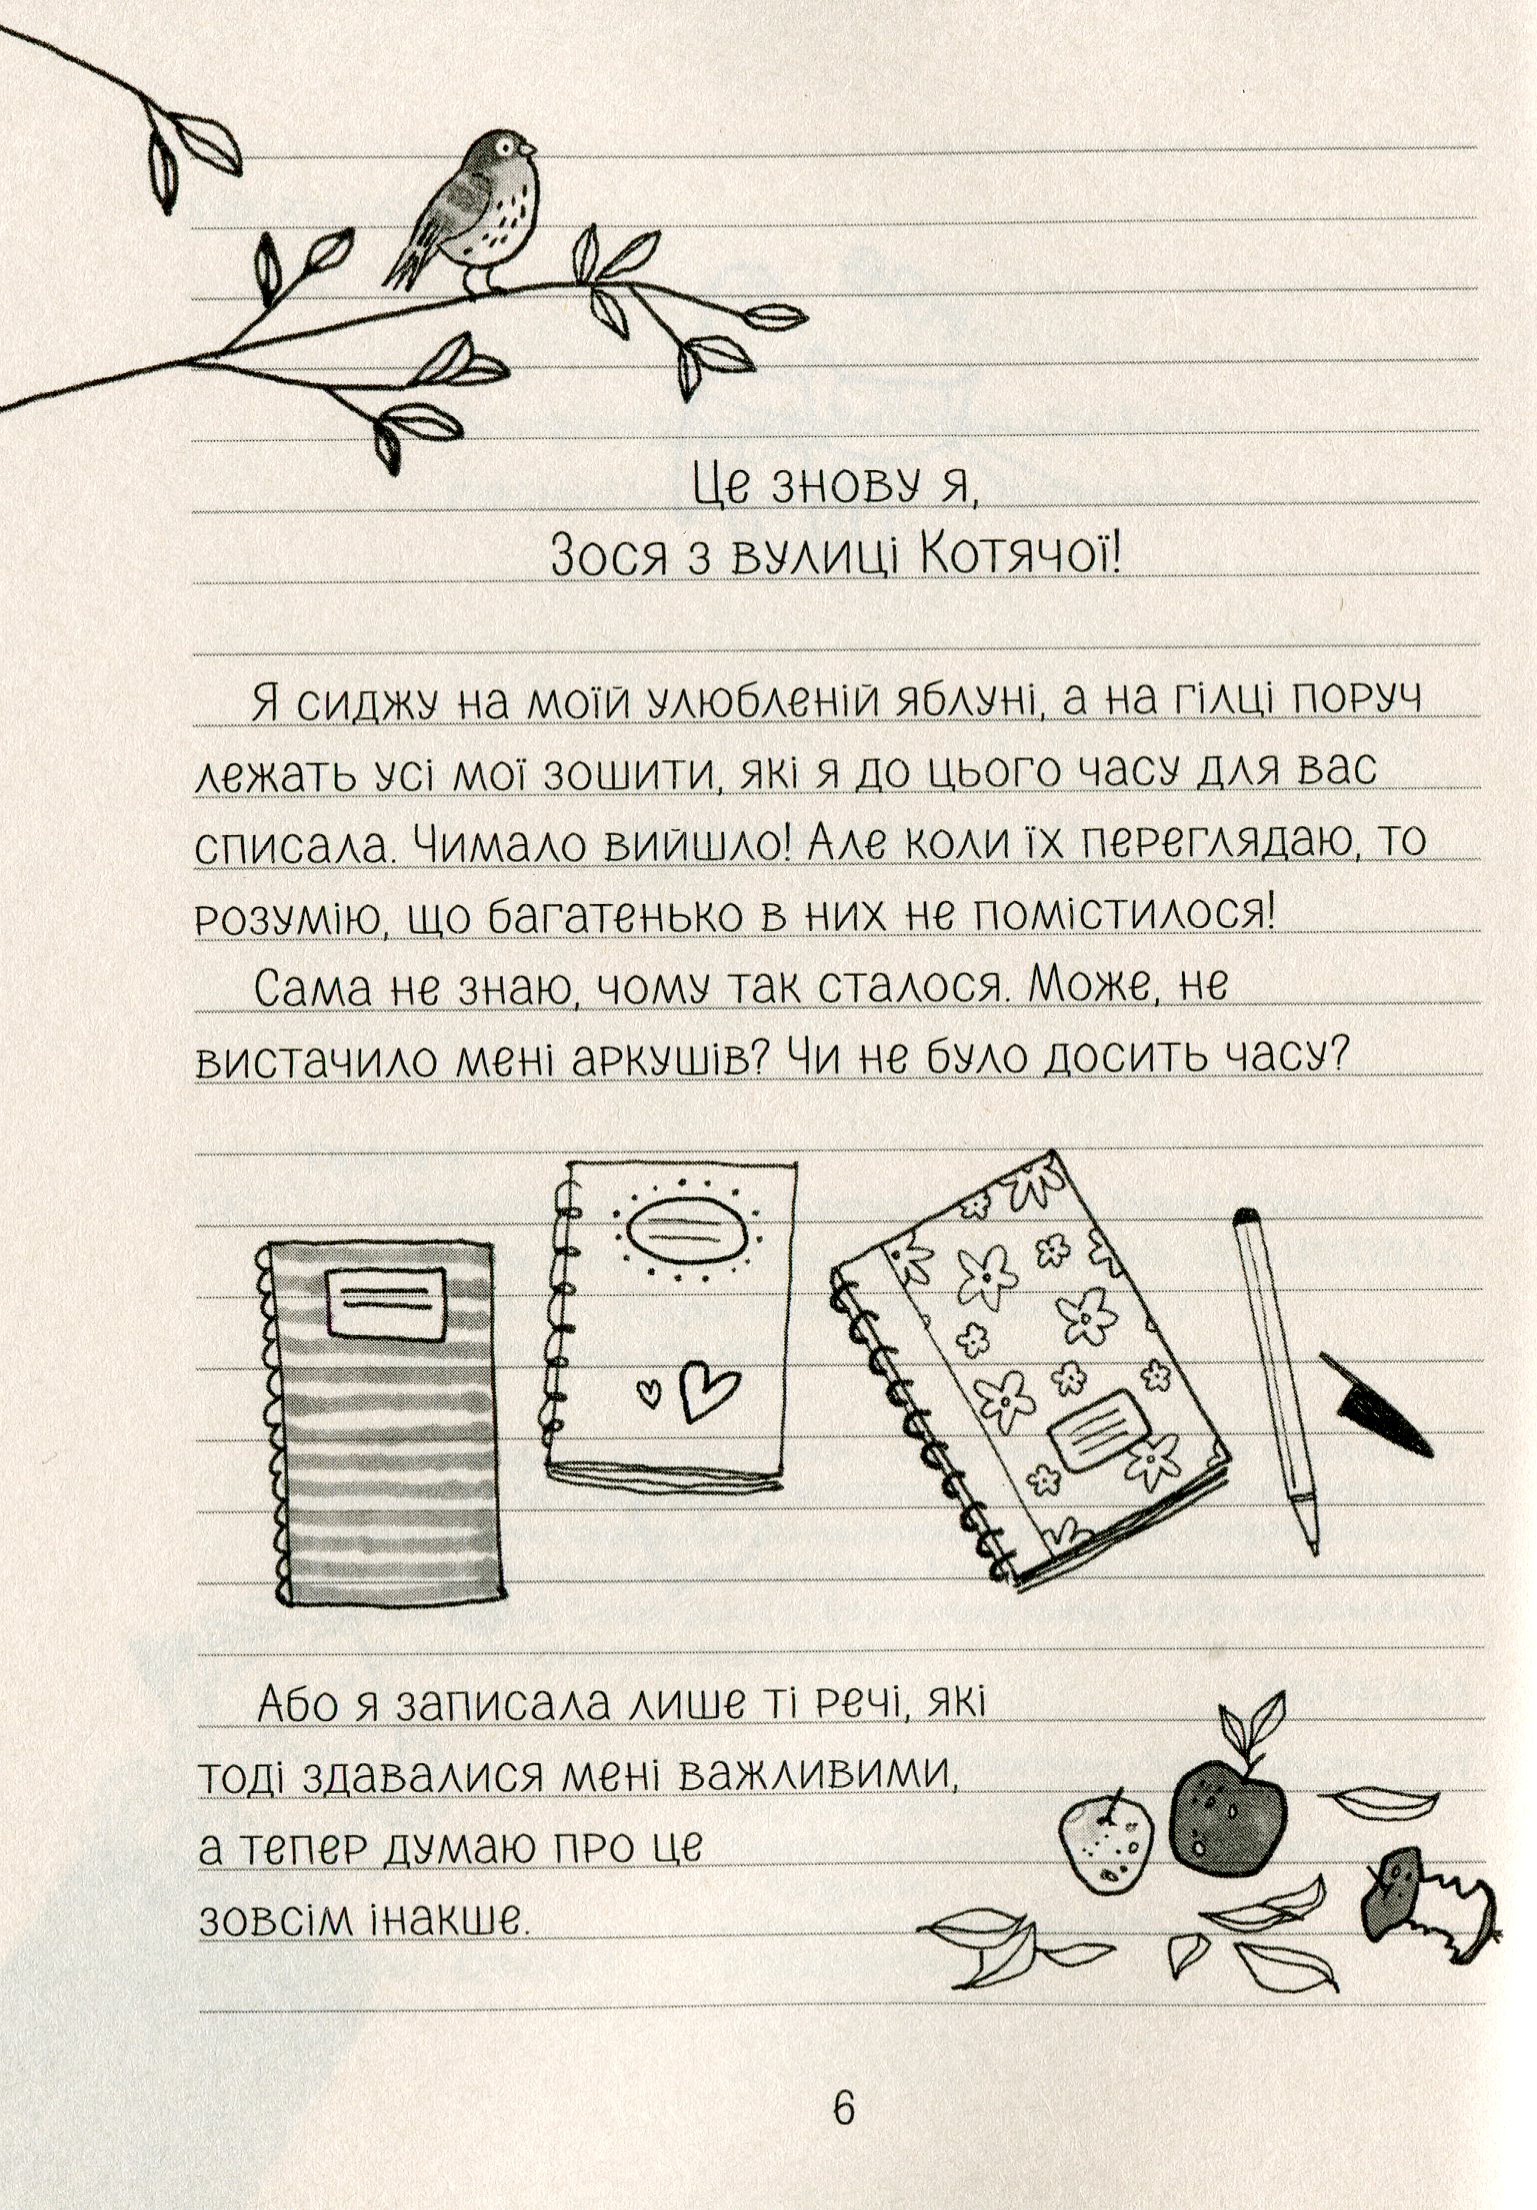 Це знову я,
Зося з вулиці Котячої!
Я сиджу на моїй улюбленій яблуні, а на гілці поруч
лежать усі мої зошити, які я до цього часу для вас
списала. Чимало вийшло! Але коли їх переглядаю, то
розумію, що багатенько в них не помістилося!
Сама не знаю, чому так сталося. Може, не
вистачило мені аркушів? Чи не було досить часу?
Або я записала лише ті речі, які
тоді здавалися мені важливими,
а тепер думаю про це
зовсім інакше.
6